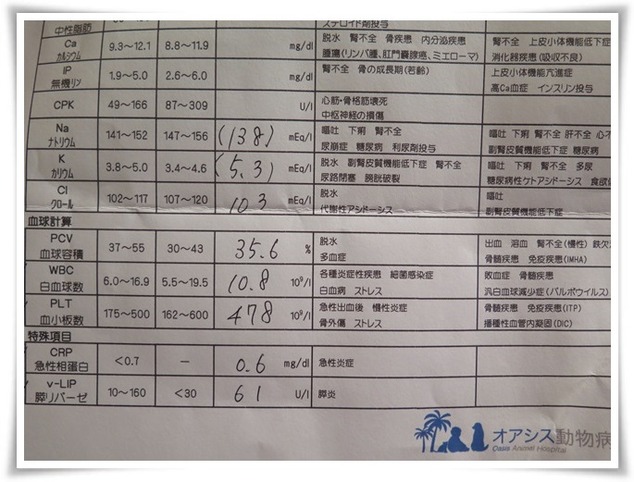 中性脂肪 ステロイド剤投与
Ca 9.3～12.1 8.8～11.9 mg/dl 脱水 腎不全 骨疾患 内分泌疾患 腎不全 上皮小体機能低下症
カルシウム 腫瘍(リンパ腫、肛門嚢腺癌、ミエローマ) 消化器疾患(吸収不良)
IP 1.9～5.0 2.6～6.0 mg/dl 腎不全 骨の成長期(若齢) 上皮小体機能亢進症
無機リン 高Ca血症 インスリン投与
CPK 49～166 87～309 U/l 心筋・骨格筋壊死
中枢神経の損傷
Na 141～152 147～156 (138) mEq/l 嘔吐 下痢 腎不全 嘔吐 下痢 腎不全 肝不全 心不
ナトリウム 尿崩症 糖尿病 利尿剤投与 副腎皮質機能低下症 糖尿病
K 3.8～5.0 3.4～4.6 (5.3) mEq/l 脱水 副腎皮質機能低下症 腎不全 嘔吐 下痢 腎不全 多尿
カリウム 尿路閉塞 膀胱破裂 糖尿病性ケトアシドーシス 食欲
Cl 102～117 107～120 103 mEq/l 脱水 嘔吐
クロール 代謝性アシドーシス 副腎皮質機能低下症
血球計算
PCV 37～55 30～43 35.6 % 脱水 出血 溶血 腎不全(慢性) 鉄欠
血球容積 多血症 骨髄疾患 免疫疾患(IMHA)
WBC 6.0～16.9 5.5～19.5 10.8 10⁹/l 各種炎症性疾患 細菌感染症 敗血症 骨髄疾患
白血球数 白血病 ストレス 汎白血球減少症(パルボウイルス)
PLT 175～500 162～600 478 10⁹/l 急性出血後 慢性炎症 骨髄疾患 免疫疾患(ITP)
血小板数 骨外傷 ストレス 播種性血管内凝固(DIC)
特殊項目
CRP <0.7 － 0.6 mg/dl 急性炎症
急性相蛋白
v-LIP 10～160 <30 61 U/l 膵炎
膵リパーゼ
オアシス動物病
Oasis Animal Hospital